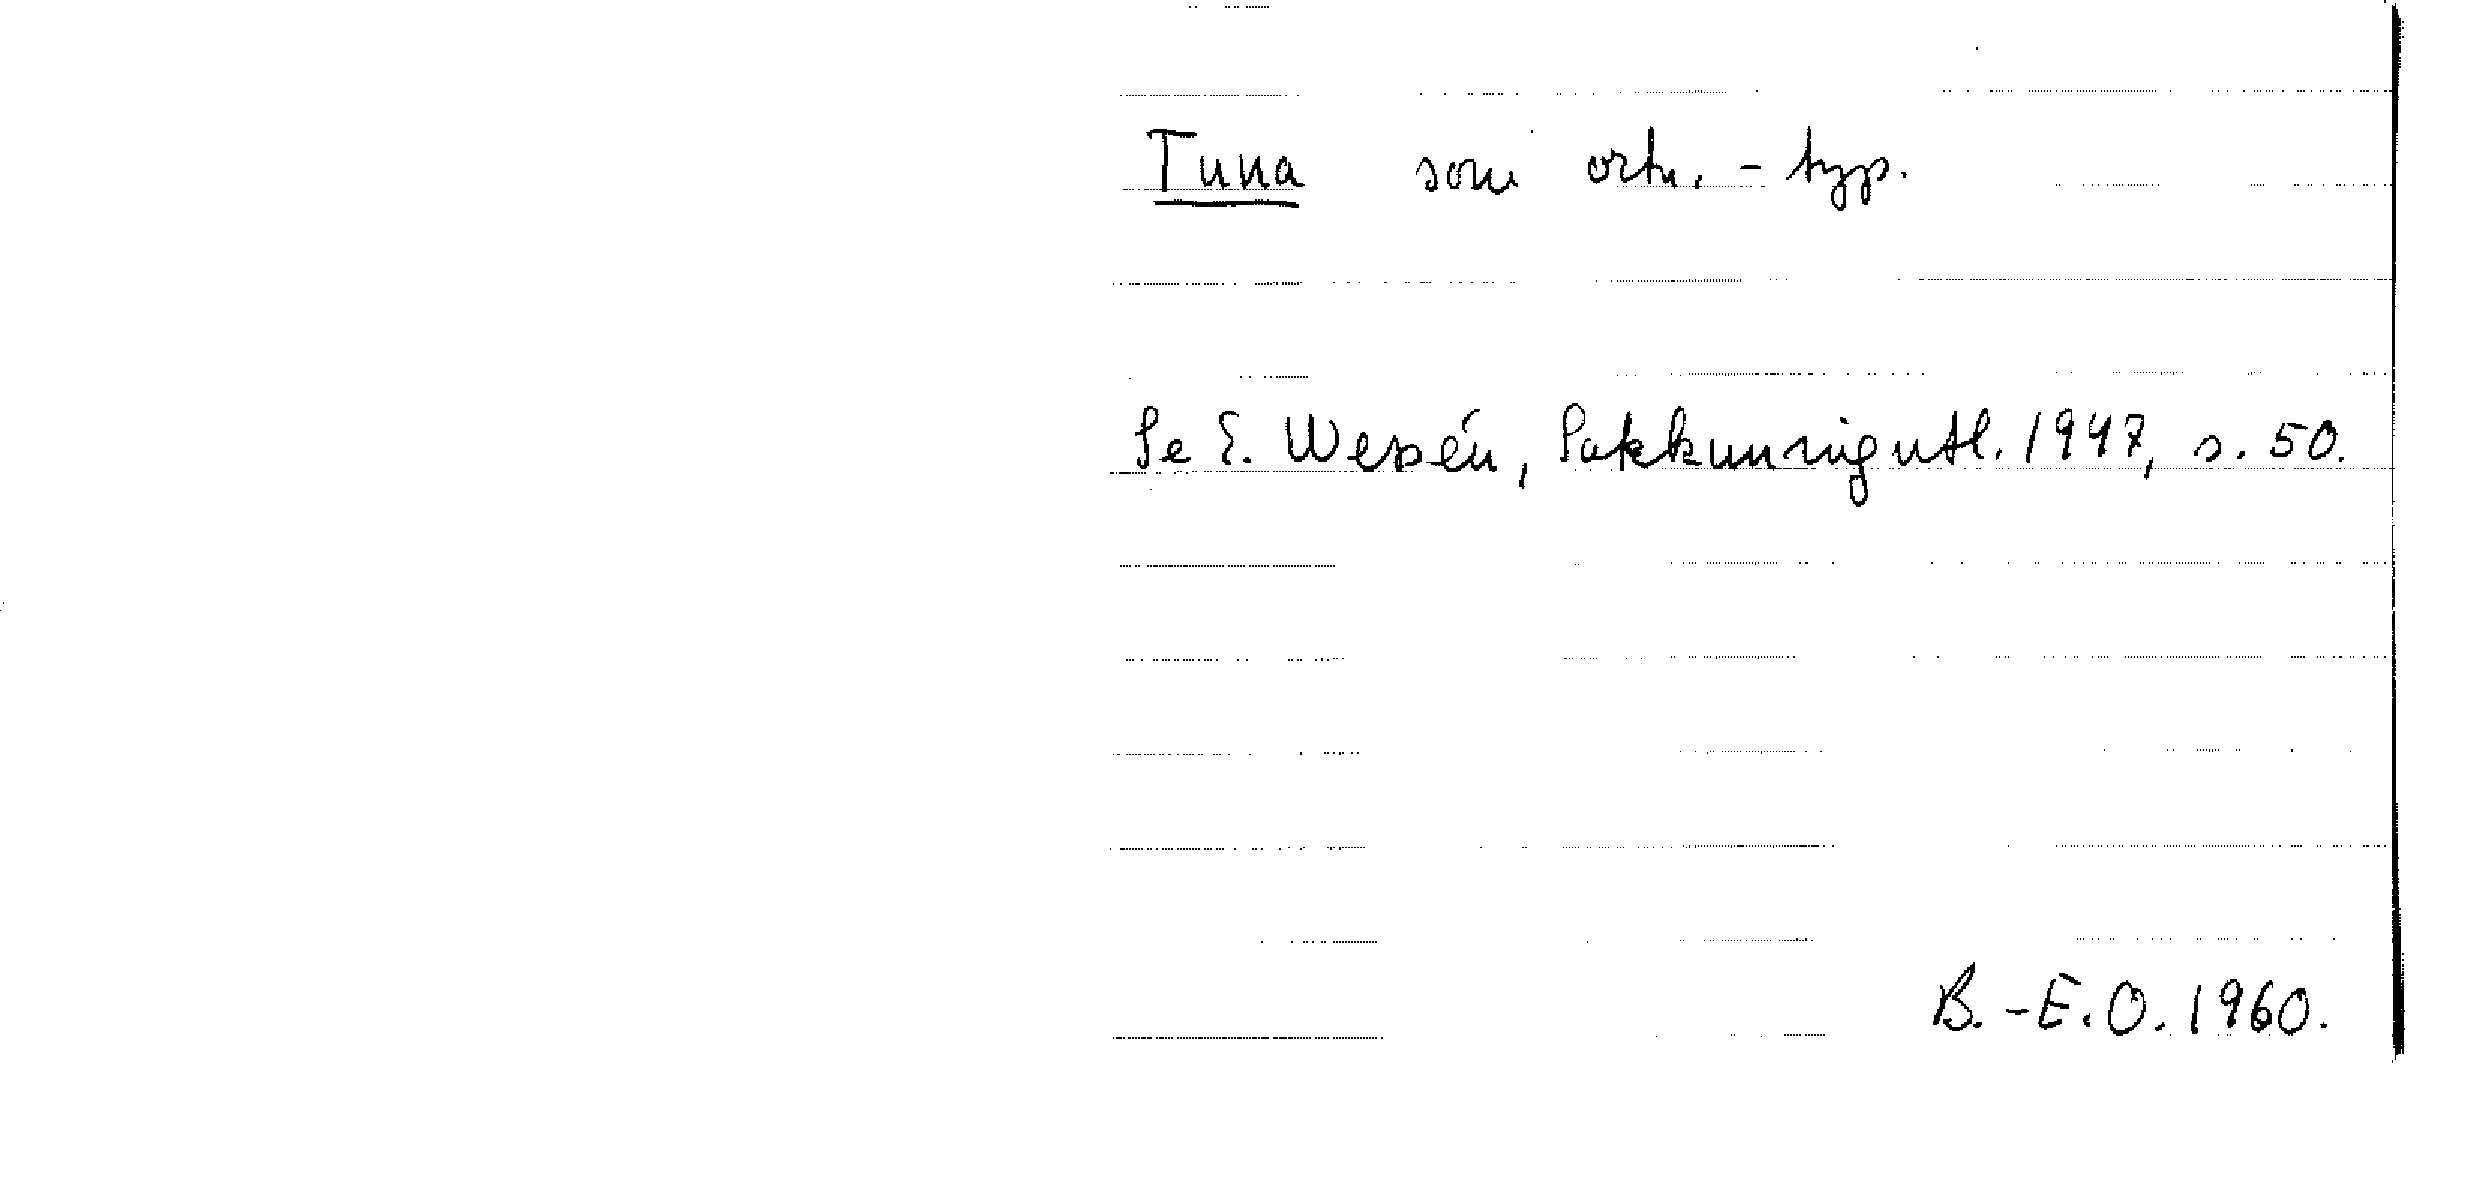 Tuna som ortn.-typ.
Se E. Wessén, Sakkunnigutl. 1947, s. 50.
B.-E.O. 1960.